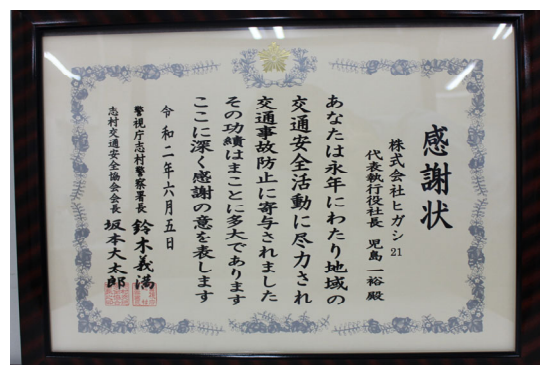 感謝状
株式会社ヒガシ21
代表執行役社長 児島一裕殿
あなたは永年にわたり地域の
交通安全活動に尽力され
交通事故防止に寄与されました
その功績はまことに多大であります
ここに深く感謝の意を表します
令和二年六月五日
警視庁志村警察署長 鈴木義満
志村交通安全協会会長 坂本大太郎